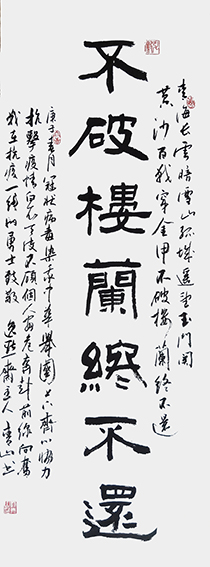 青海長雲暗雪山孤城遥望玉门関
黄沙百戰穿金甲不破楼蘭終不還
不破樓蘭終不還
庚子春月冠状病毒染我中華舉國上下齊心協力
抗擊疫情白衣不顾個人安危奔赴前線向奮
战在抗疫一線的勇士致敬 齋主人青山书